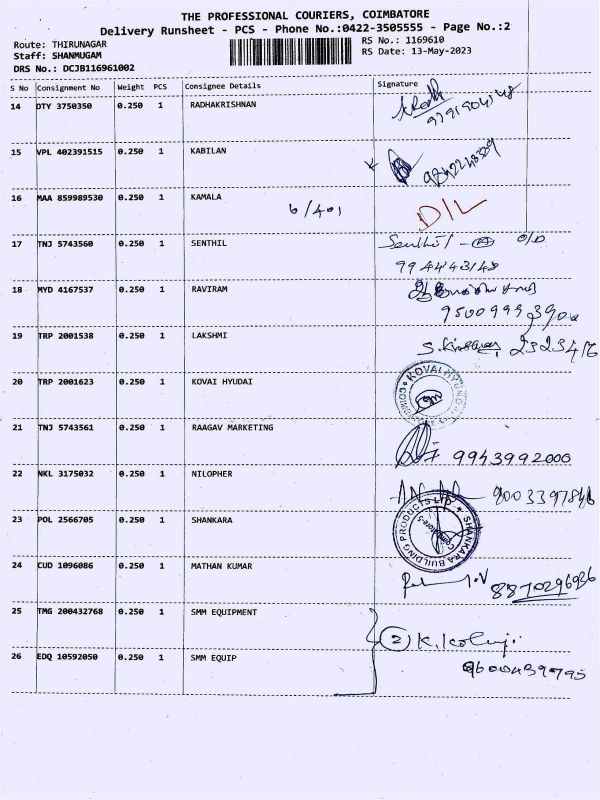 THE PROFESSIONAL COURIERS, COIMBATORE
Delivery Runsheet - PCS - Phone No.:0422-3505555 - Page No.:2
Route: THIRUNAGAR RS No.: 1169610
Staff: SHANMUGAM RS Date: 13-May-2023
DRS No.: DCJB116961002
S No Consignment No Weight PCS Consignee Details Signature
14 DTY 3750350 0.250 1 RADHAKRISHNAN
15 VPL 402391515 0.250 1 KABILAN
16 MAA 859989530 0.250 1 KAMALA 6/401 D/L
17 TNJ 5743560 0.250 1 SENTHIL Senthil
9944443148
18 MYD 4167537 0.250 1 RAVIRAM
19 TRP 2001538 0.250 1 LAKSHMI 2323416
20 TRP 2001623 0.250 1 KOVAI HYUDAI KOVAI HYUNDAI
21 TNJ 5743561 0.250 1 RAAGAV MARKETING 9943992000
22 NKL 3175032 0.250 1 NILOPHER 9003397846
23 POL 2566705 0.250 1 SHANKARA SHANKARA BUILDING PRODUCTS LTD
24 CUD 1096086 0.250 1 MATHAN KUMAR
8870296926
25 TMG 200432768 0.250 1 SMM EQUIPMENT 2
26 EDQ 10592050 0.250 1 SMM EQUIP 9600439795